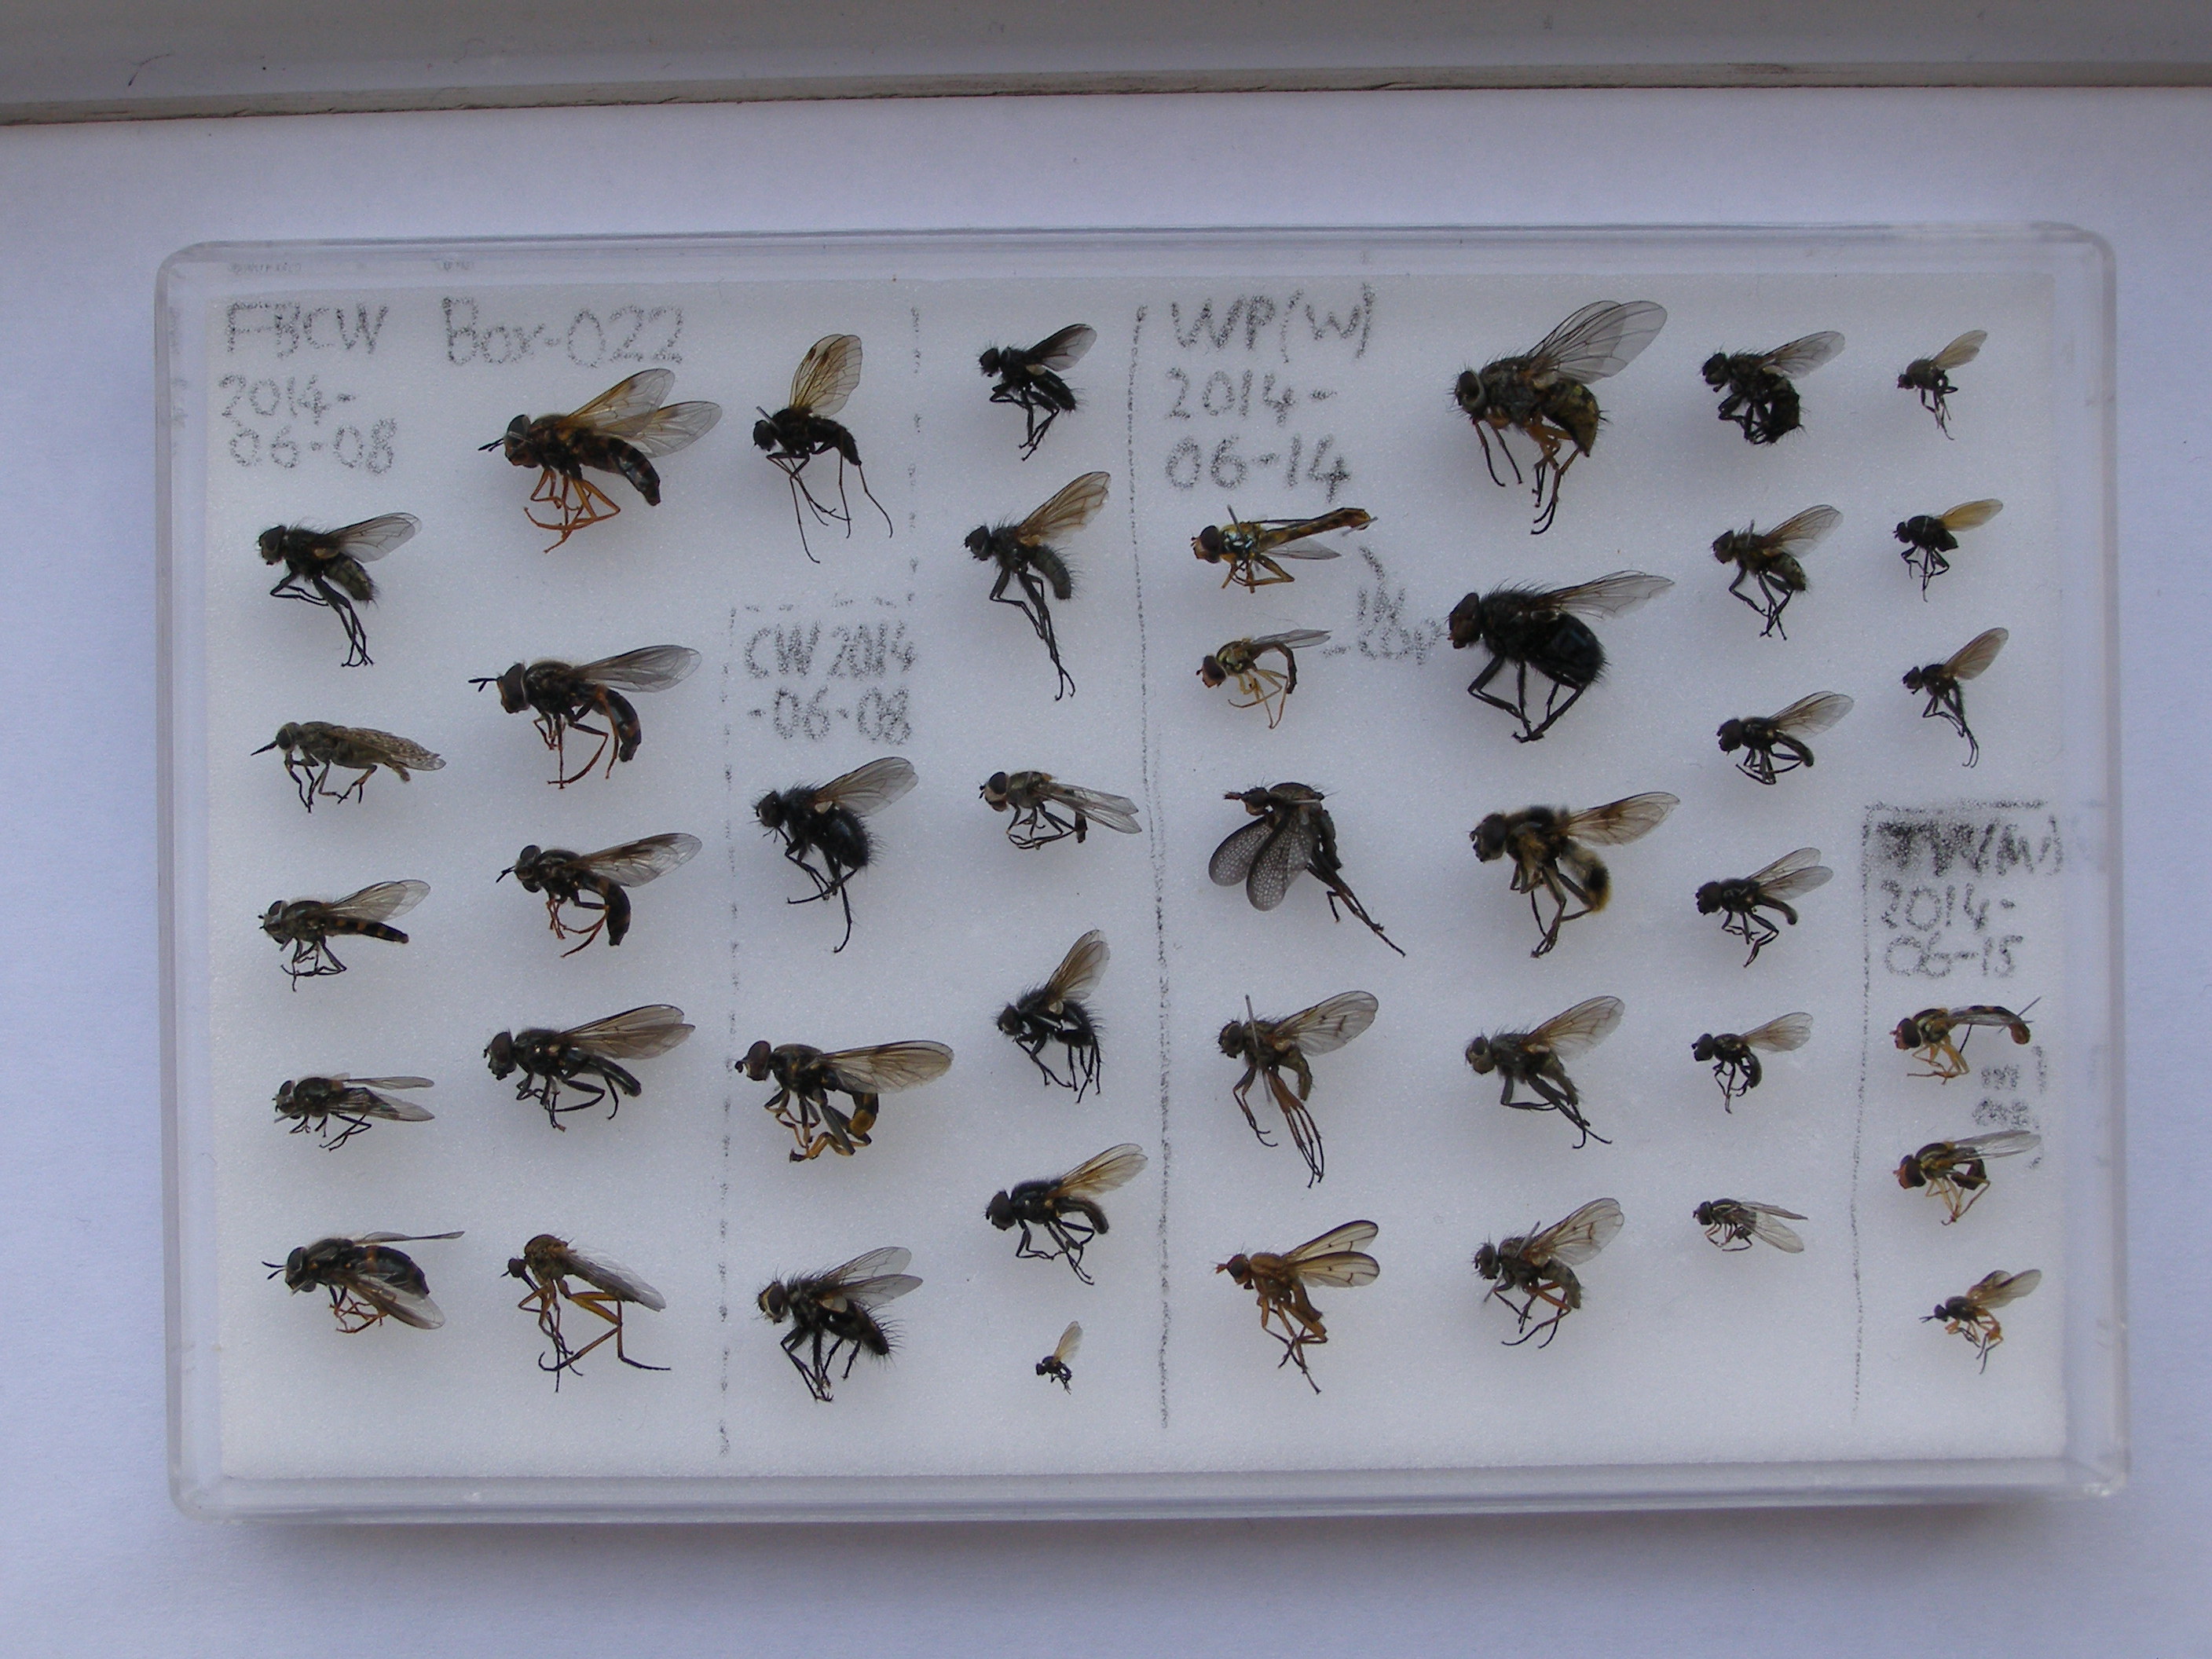 FBCW Box-022
2014-
06-08
CW 2014
-06-08
WP(W)
2014-
06-14
IN
COP
2014-
06-15
IN